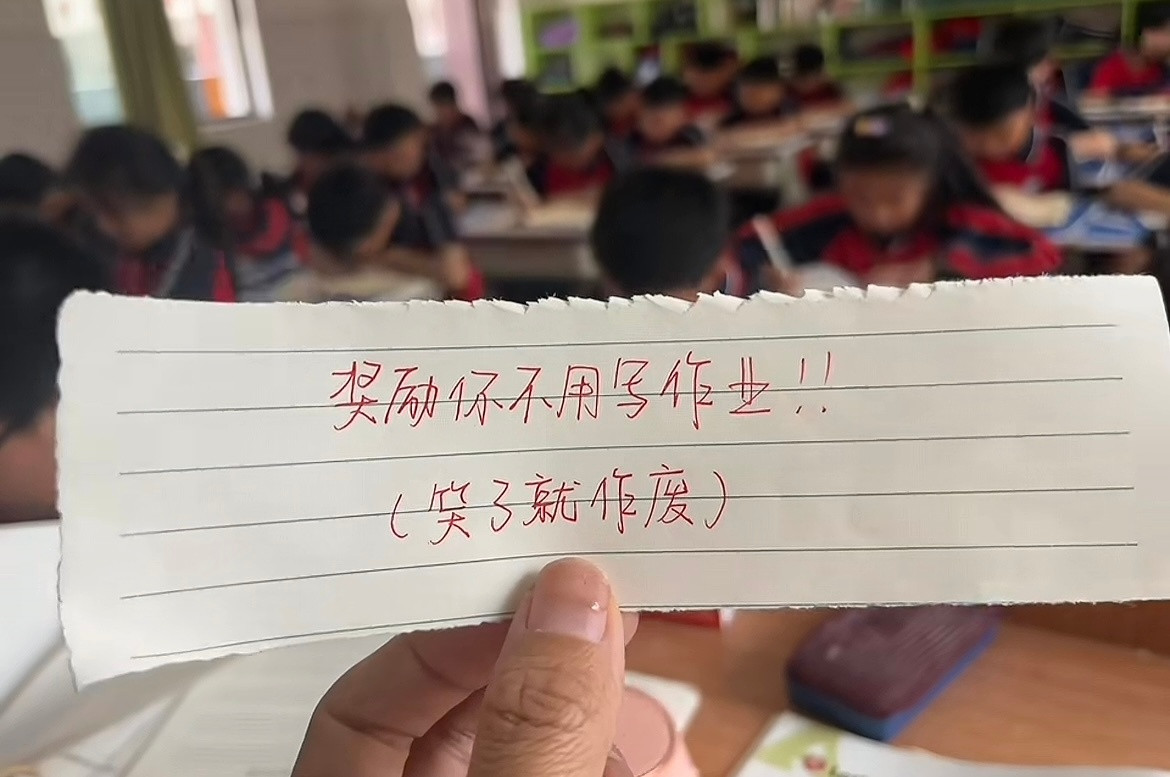 奖励你不用写作业！！
（笑了就作废）